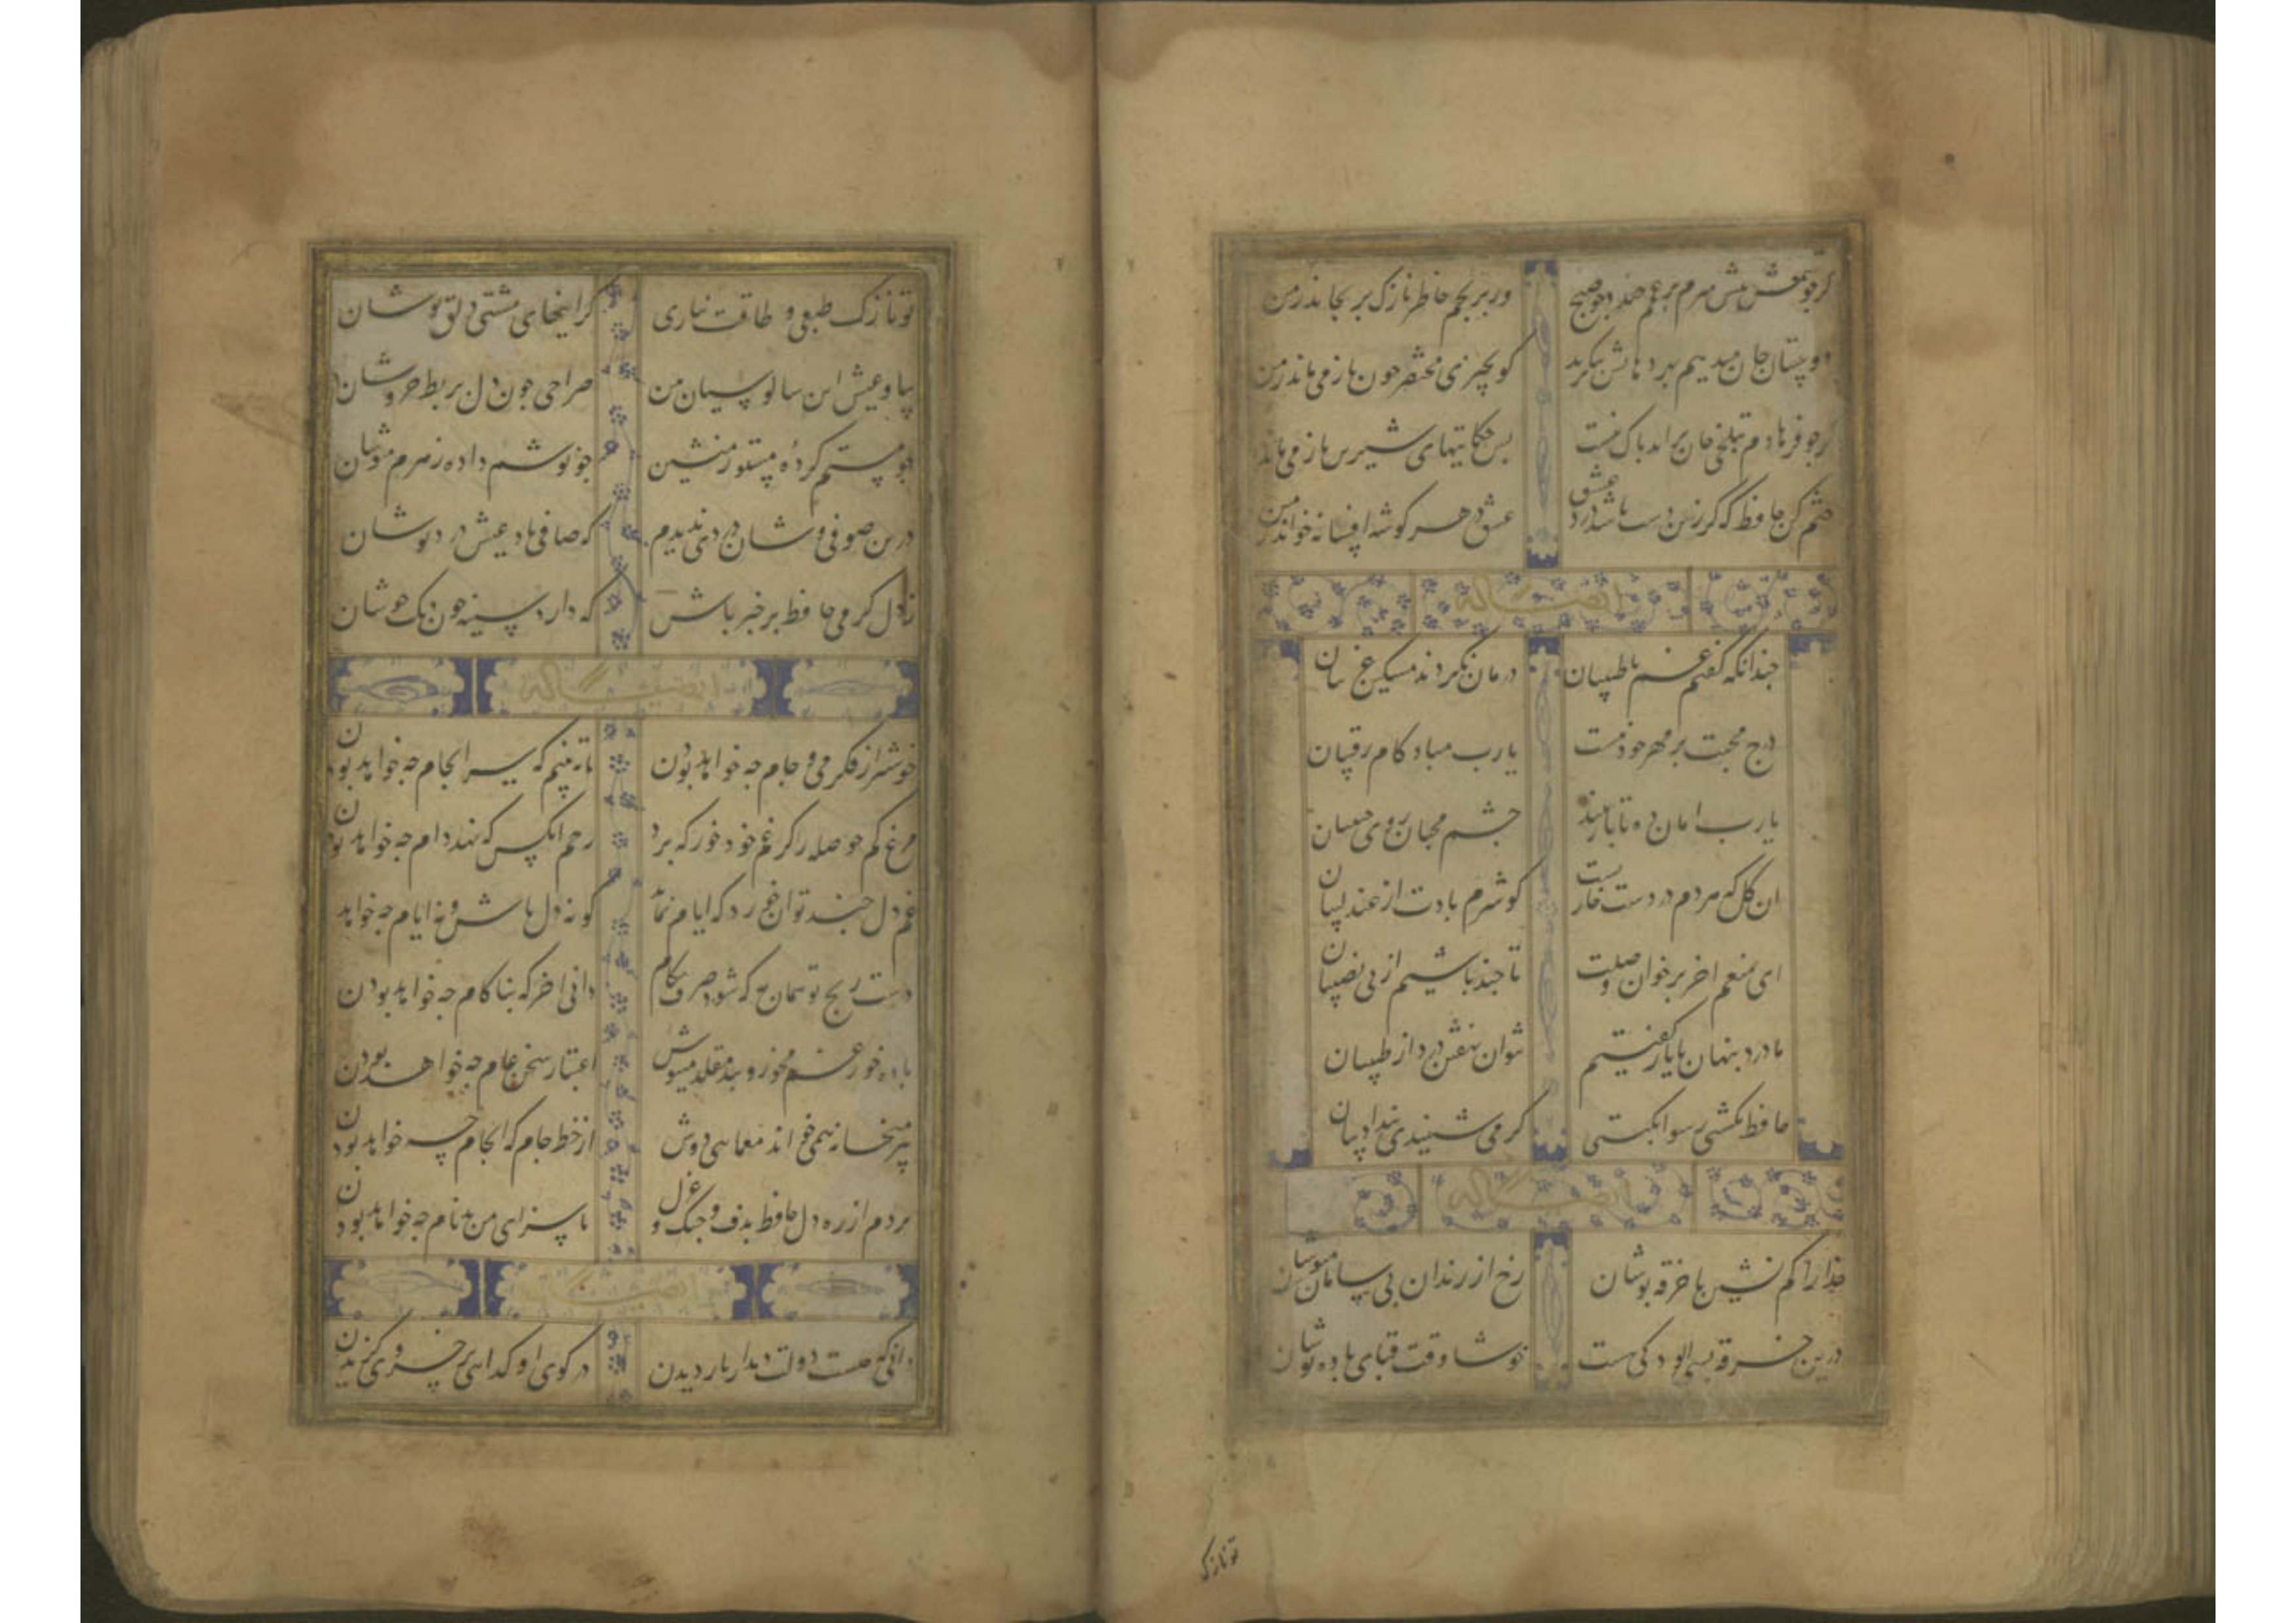 گر چو شمعش پیش میرم بر غمم خندد چو صبح
ور برنجم خاطر نازک برنجاند ز من
دوستان جان میدهم بهر دهانش بنگرید
کو بچیزی مختصر چون باز می ماند ز من
گر چو فرهادم بتلخی جان براید باک نیست
بس حکایتهای شیرین باز می ماند ز من
ختم کن حافظ که گر زین دست باشد درد عشق
عشق در هر گوشه افسانه خواند ز من
ایضا له
چندانکه گفتم غم با طبیبان
درمان نکردند مسکین غریبان
درج محبت بر مهر خود نیست
یا رب مباد کام رقیبان
یا رب امان ده تا باز بیند
چشم محبان روی حبیبان
ان گل که مردم در دست خاریست
گو شرم بادت از عندلیبان
ای منعم اخر بر خوان وصلت
تا چند باشیم از بی نصیبان
ما درد پنهان با یار گفتیم
نتوان نهفتن درد از طبیبان
حافظ نگشتی رسوای گیتی
گر می شنیدی پند ادیبان
ایضا له
خدا را کم نشین با خرقه پوشان
رخ از رندان بی سامان مپوشان
درین خرقه بسی الودگی هست
خوشا وقت قبای باده نوشان
تو نازک
تو نازک طبعی و طاقت نیاری
گرانیهای مشتی دلق پوشان
بیا و عیش این سالوسیان من
صراحی چون دل بربط خروشان
چو مستم کرده مستور منشین
چو نوشم داده زهرم منوشان
درین صوفی وشان دردی ندیدم
که صافی باد عیش درد نوشان
ز دل گرمی حافظ بر حذر باش
که دارد سینه چون دیک جوشان
ایضا له
خوشتر از فکر می و جام چه خواهد بودن
تا ببینم که سرانجام چه خواهد بودن
مرغ کم حوصله را گو غم خود خور که برو
رحم انکس که نهد دام چه خواهد بودن
غم دل چند توان خورد که ایام نماند
گو نه دل باش و نه ایام چه خواهد
دست رنج تو همان به که شود صرف بکام
دانی اخر که بناکام چه خواهد بودن
باده خور غم مخور و پند مقلد منیوش
اعتبار سخن عام چه خواهد بودن
پیر میخانه همی خواند معمایی دوش
از خط جام که انجام چه خواهد بودن
بردم از ره دل حافظ بدف و چنگ و غزل
تا سزای من بدنام چه خواهد بودن
ایضا له
دانی که چیست دولت دیدار یار دیدن
در کوی او گدایی بر خسروی گزیدن